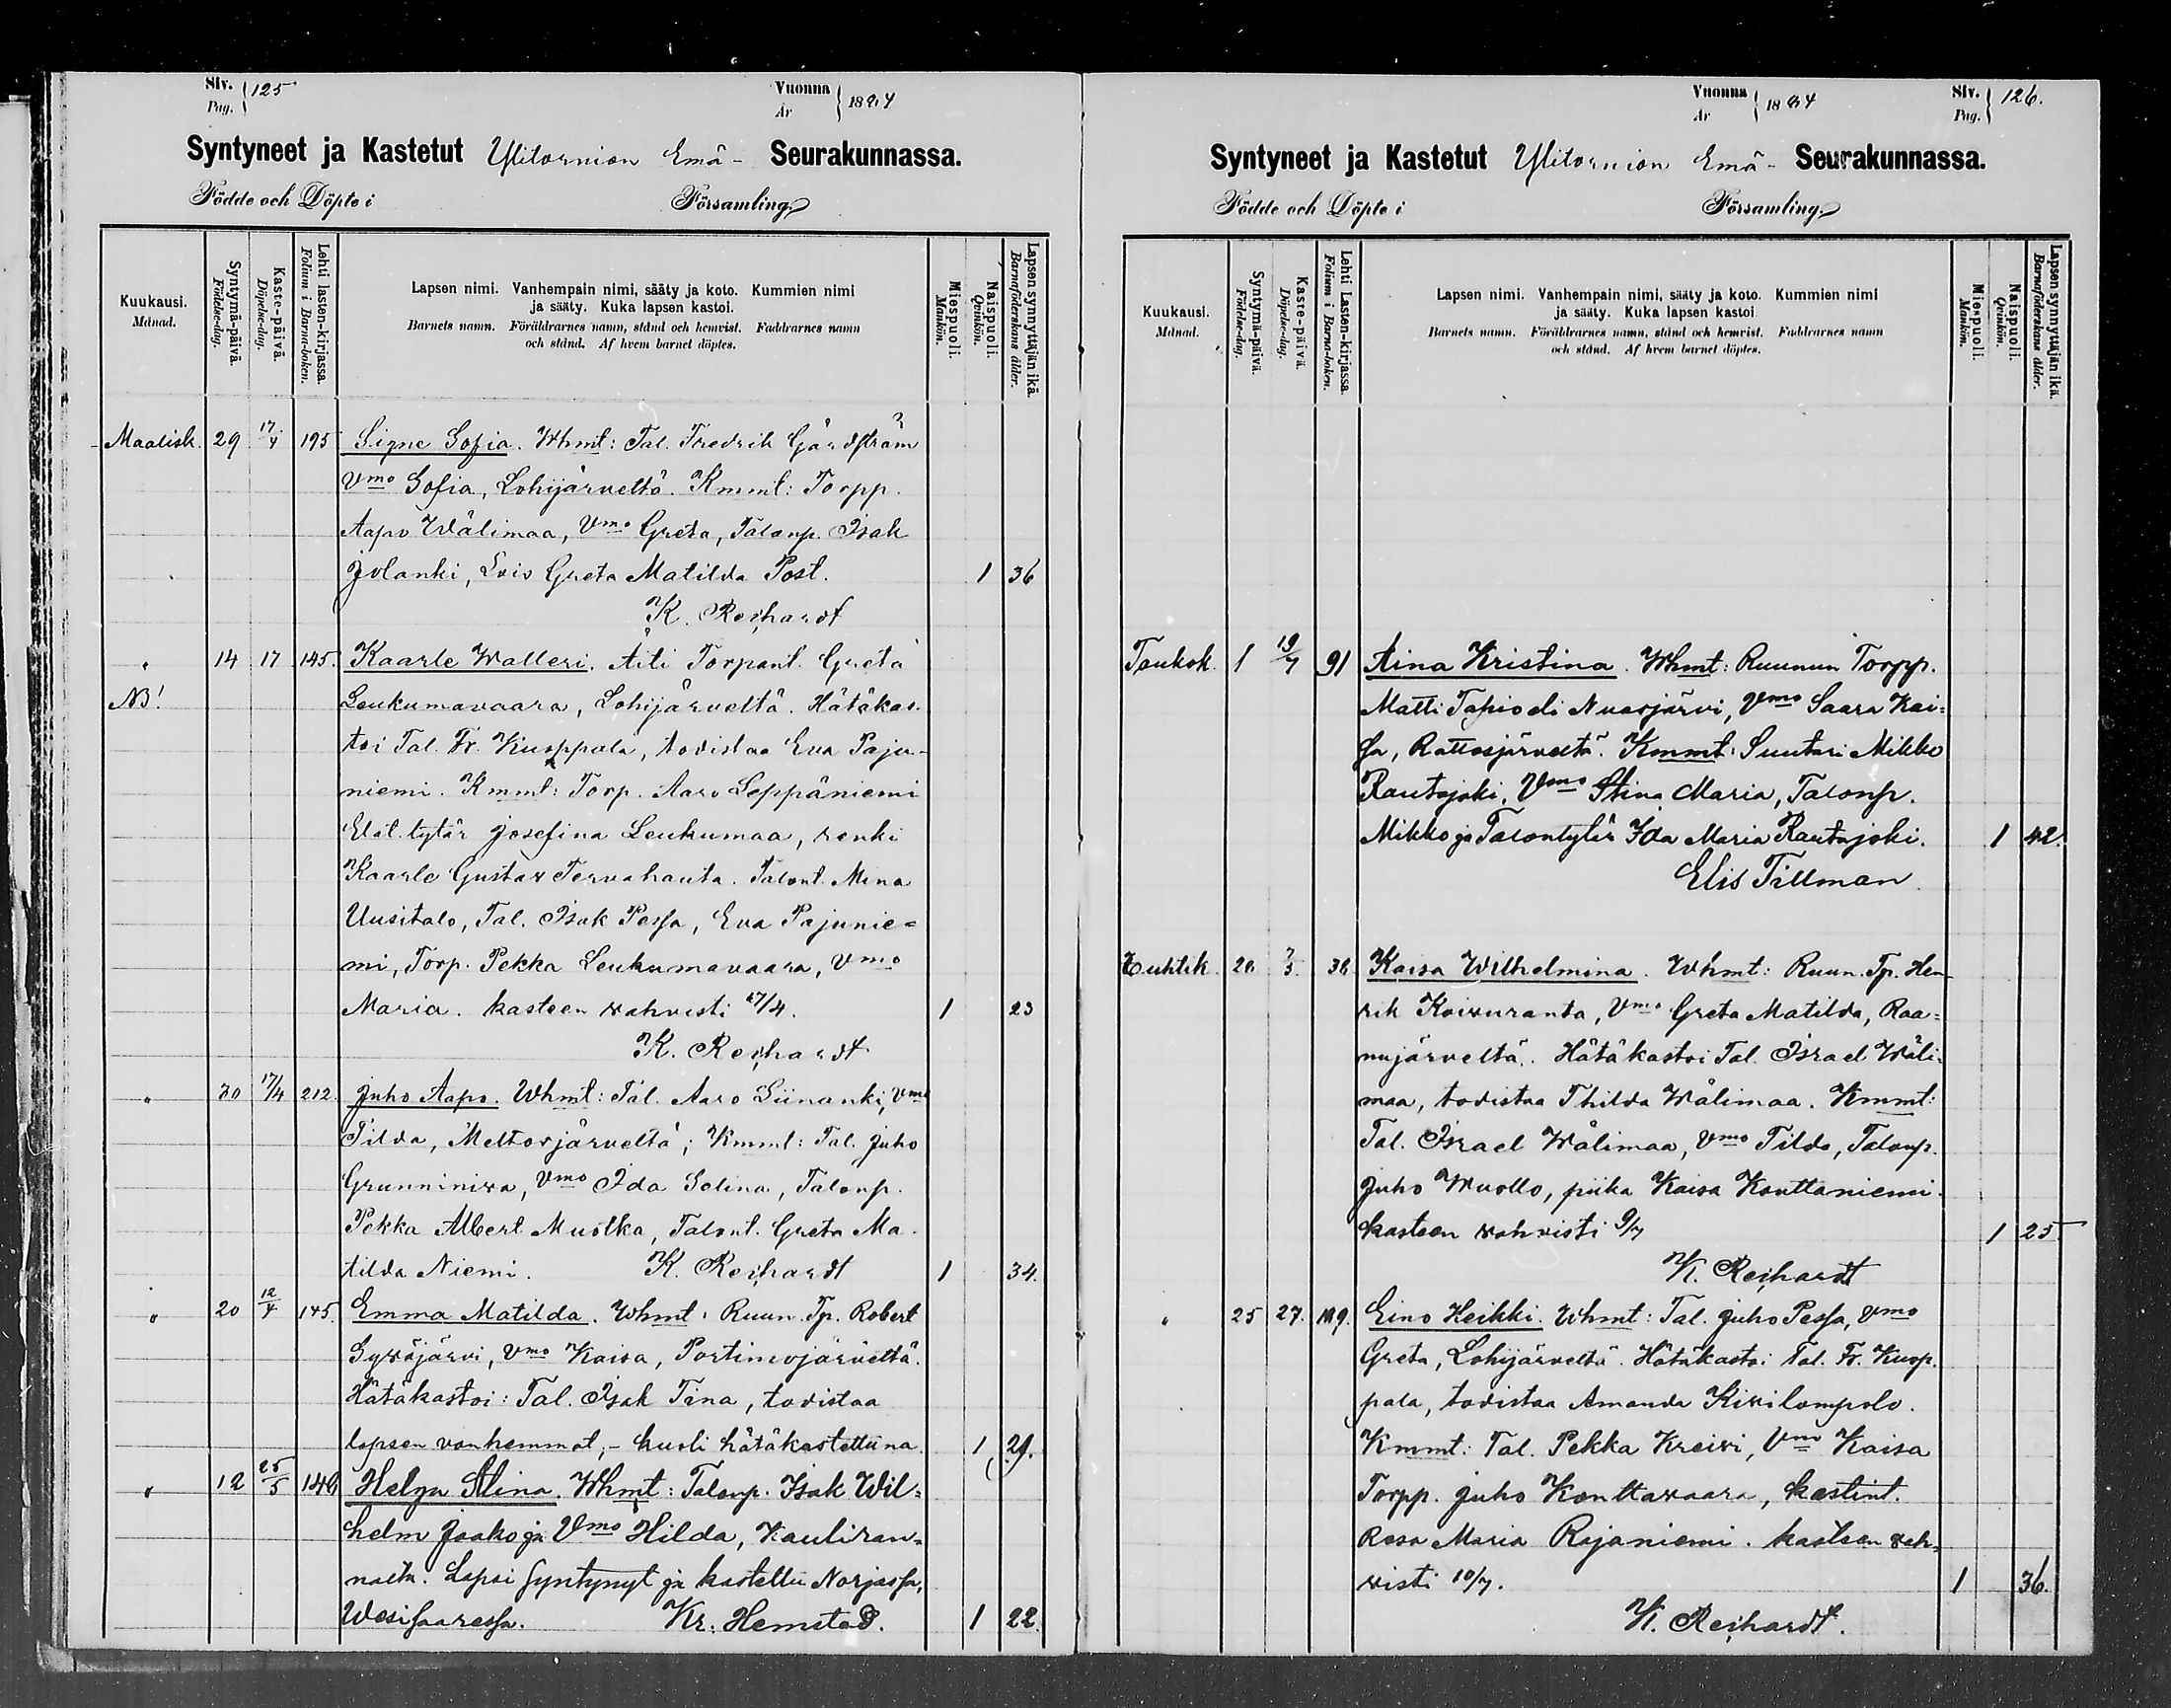 Siv. 125
Pag.
Vuonna 1894
År
Syntyneet ja Kastetut Ylitornion Emä- Seurakunnassa.
Födde och Döpte i Församling.
Kuukausi.
Månad.
Syntymä-päivä.
Födelse-dag.
Kaste-päivä.
Döpelse-dag.
Lehti lasten-kirjassa.
Folium i Barna-boken.
Lapsen nimi. Vanhempain nimi, sääty ja koto. Kummien nimi
ja sääty. Kuka lapsen kastoi.
Barnets namn. Föräldrarnes namn, stånd och hemvist. Faddrarnes namn
och stånd. Af hvem barnet döptes.
Miespuoli.
Mankön.
Naispuoli.
Qvinkön.
Lapsen synnyttäjän ikä.
Barnaföderskans ålder.
Maalisk. 29 17/4 195 Signe Sofia. Whmt: Tal. Fredrik Gårdström
Vmo Sofia, Lohijärveltä. Kmmt: Torpp.
Aapo Wälimaa, Vmo Greta, Talonp. Isak
Jolanki, Leio Greta Matilda Post. 1 36
K. Reichardt
" 14 17 145. Kaarle Walleri. Äiti Torpant. Greta
NB! Leukumavaara, Lohijärveltä. Hätäkas-
toi Tal. Fr. Kuoppala, todistaa Eva Paju-
niemi. Kmmt: Torp. Aaro Leppäniemi
Elät. tytär Josefina Leukumaa, renki
Kaarle Gustav Tervahauta. Talont. Mina
Uusitalo, Tal. Isak Pessa, Eva Pajunie=
mi, Torp. Pekka Leukumavaara, Vmo
Maria. kasteen vahvisti 17/4. 1 23
K. Reichardt
" 30 17/4 212 Juho Aapo. Whmt: Tal. Aaro Liinanki, Vmo
Tilda, Meltosjärveltä; Kmmt: Tal. Juho
Grunniniva, Vmo Ida Selina, Talonp.
Pekka Albert Mustka, Talont. Greta Ma-
tilda Niemi. K. Reichardt 1 34.
" 20 12/4 145. Emma Matilda. Whmt: Ruun. Tp. Robert
Syväjärvi, Vmo Kaisa, Portimojärveltä.
Hätäkastoi: Tal. Isak Tina, todistaa
lapsen vanhemmat, - kuoli hätäkastettuna. 1 29.
" 12 25/5 148 Helga Alina. Whmt: Talonp. Isak Wil=
helm Jaako ja Vmo Hilda, Kauliran=
nalta. Lapsi syntynyt ja kastettu Norjassa,
Wesisaaressa. Kr. Hemstad. 1 22.
Vuonna 1894
År
Siv. 126.
Pag.
Syntyneet ja Kastetut Ylitornion Emä- Seurakunnassa.
Födde och Döpte i Församling.
Kuukausi.
Månad.
Syntymä-päivä.
Födelse-dag.
Kaste-päivä.
Döpelse-dag.
Lehti Lasten-kirjassa.
Folium i Barna-boken.
Lapsen nimi. Vanhempain nimi, sääty ja koto. Kummien nimi
ja sääty. Kuka lapsen kastoi.
Barnets namn. Föräldrarnes namn, stånd och hemvist. Faddrarnes namn
och stånd. Af hvem barnet döptes.
Miespuoli.
Mankön.
Naispuoli.
Qvinkön.
Lapsen synnyttäjän ikä.
Barnaföderskans ålder.
Toukok. 1 91 Aina Kristina. Whmt: Ruunun Torpp.
Matti Tapio eli Nuasjärvi, Vmo Saara Kai=
sa, Rattosjärveltä. Kmmt: Suutari Mikko
Rautajoki, Vmo Stina Maria, Talonp.
Mikko ja Talontytär Ida Maria Rautajoki. 1 42.
Elis Tillman.
Huhtik. 20 36 Kaisa Wilhelmina. Whmt: Ruun. Tp. Hen-
rik Koivuranta, Vmo Greta Matilda, Raa=
nujärveltä. Hätäkastoi Tal. Israel Wäli-
maa, todistaa Thilda Wälimaa. Kmmt:
Tal. Israel Wälimaa, Vmo Tilda, Talonp.
Juho Wuollo, piika Kaisa Konttaniemi.
kasteen vahvisti 9/7 1 25
K. Reichardt
" 25 27. Eino Heikki. Whmt: Tal. Juho Pessa, Vmo
Greta, Lohijärveltä. Hätäkastoi Tal. Fr. Kuop-
pala, todistaa Amanda Kivilompolo.
Kmmt: Tal. Pekka Kreivi, Vmo Kaisa
Torpp. Juho Konttavaara, kestint.
Rosa Maria Rajaniemi. kasteen vah=
visti 10/7. 1 36.
K. Reichardt.